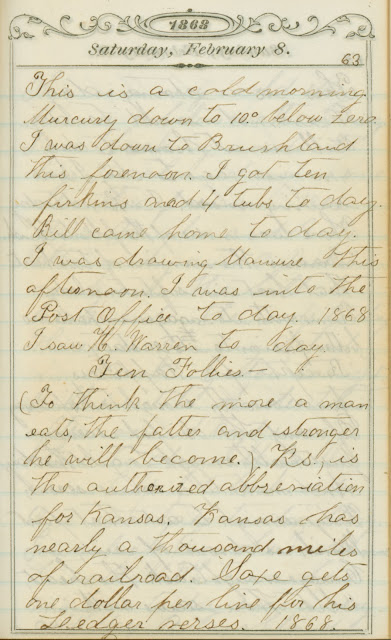 1868
Saturday, February 8.
63
This is a cold morning.
Murcury down to 10° below Zero.
I was down to Brushland
this forenoon. I got ten
firkins and 4 tubs to day.
Bill came home to day.
I was drawing Manure this
afternoon. I was into the
Post Office to day. 1868
I saw H. Warren to day.
Ten Follies.—
(To think the more a man
eats, the fatter and stronger
he will become.) Ks, is
the authorized abbreviation
for Kansas. Kansas has
nearly a thousand miles
of railroad. Saxe gets
one dollar per line for his
Ledger verses. 1868.